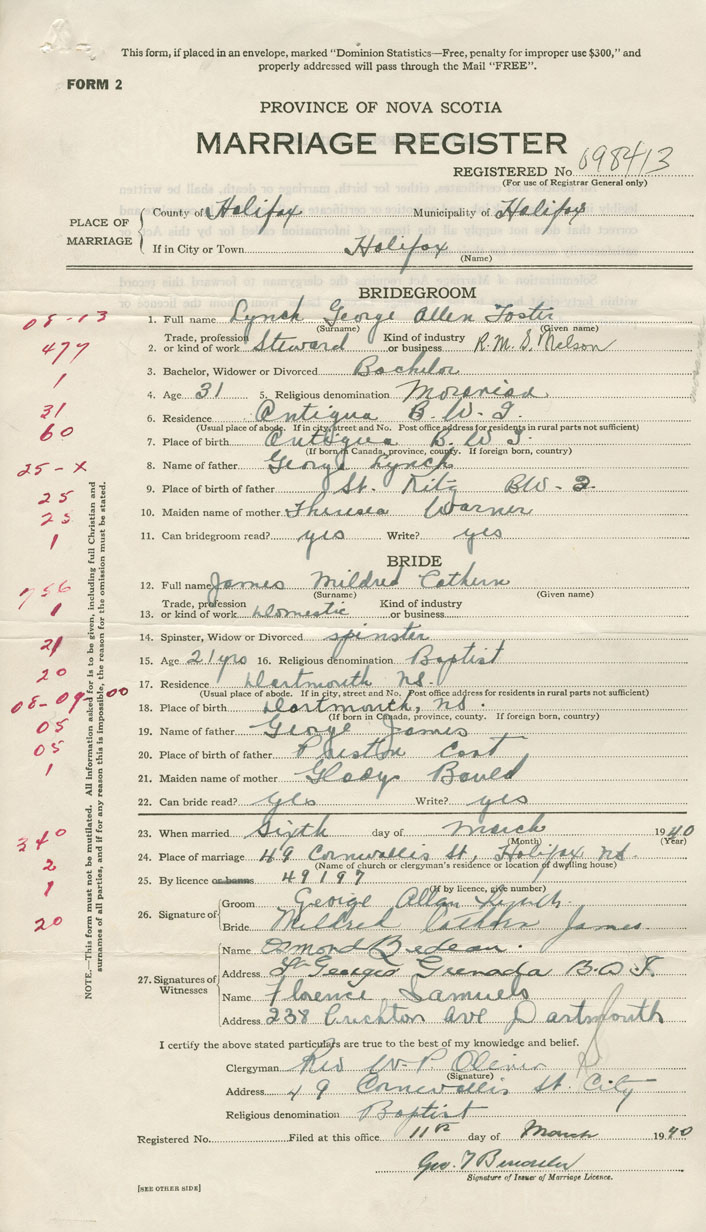 This form, if placed in an envelope, marked "Dominion Statistics—Free, penalty for improper use $300," and
properly addressed will pass through the Mail "FREE".
FORM 2
PROVINCE OF NOVA SCOTIA
MARRIAGE REGISTER
REGISTERED No. 698413
(For use of Registrar General only)
PLACE OF MARRIAGE
County of Halifax Municipality of Halifax
If in City or Town Halifax
(Name)
BRIDEGROOM
08-13
1. Full name Lynch George Allen Foster
(Surname) (Given name)
477
2. Trade, profession or kind of work Steward Kind of industry or business R.M.S. Nelson
1
3. Bachelor, Widower or Divorced Bachelor
4. Age 31 5. Religious denomination Moravian
31
6. Residence Antigua B.W.I.
(Usual place of abode. If in city, street and No. Post office address for residents in rural parts not sufficient)
60
7. Place of birth Antigua B.W.I.
(If born in Canada, province, county. If foreign born, country)
25-x
8. Name of father George Lynch
25
9. Place of birth of father St. Kitz BW-
25
10. Maiden name of mother Theresea Warner
1
11. Can bridegroom read? yes Write? yes
BRIDE
756
12. Full name James Mildred Cathern
(Surname) (Given name)
1
13. Trade, profession or kind of work Domestic Kind of industry or business
14. Spinster, Widow or Divorced spinster
21
15. Age 21 yrs 16. Religious denomination Baptist
20
17. Residence Dartmouth NS.
(Usual place of abode. If in city, street and No. Post office address for residents in rural parts not sufficient)
08-09-00
18. Place of birth Dartmouth, NS.
(If born in Canada, province, county. If foreign born, country)
05
19. Name of father George James
05
20. Place of birth of father Preston
1
21. Maiden name of mother Gladys Bauld
22. Can bride read? yes Write? yes
23. When married Sixth day of March 1940
(Month) (Year)
340
24. Place of marriage 49 Cornwallis St, Halifax NS.
(Name of church or clergyman's residence or location of dwelling house)
2
25. By licence or banns 49197
(If by licence, give number)
1
26. Signature of
Groom George Allan Lynch
Bride Mildred Cathern James
20
27. Signatures of Witnesses
Name Osmond Bedeau.
Address St Georges Grenada B.W.I.
Name Florence Samuels
Address 238 Crichton Ave Dartmouth
I certify the above stated particulars are true to the best of my knowledge and belief.
Clergyman Rev W.P. Oliver
(Signature)
Address 49 Cornwallis St. City
Religious denomination Baptist
Registered No. Filed at this office 11th day of March 1940
Geo. F
Signature of Issuer of Marriage Licence.
[SEE OTHER SIDE]
NOTE.—This form must not be mutilated. All information asked for is to be given, including full Christian and
surnames of all parties, and if for any reason this is impossible, the reason for the omission must be stated.